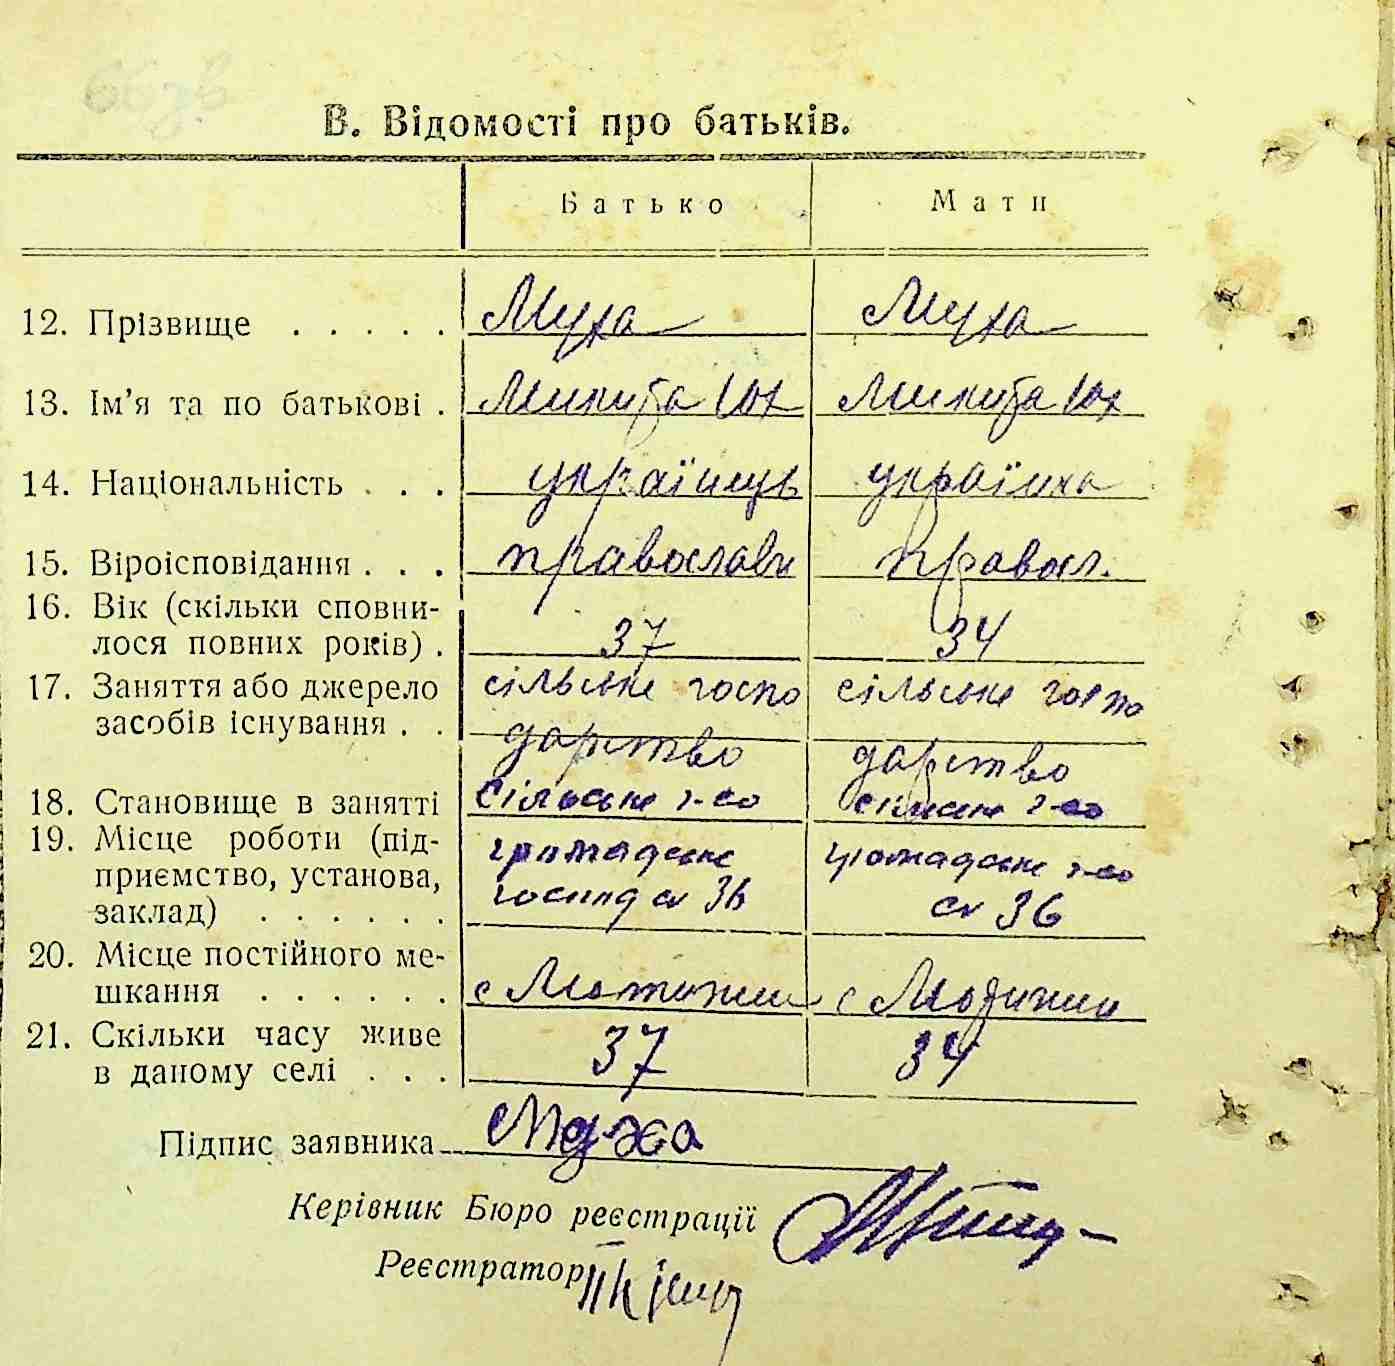 В. Відомості про батьків.
Батько Мати
12. Прізвище . . . . . Муха Муха
13. Ім'я та по батькові . Микита Юх Микита Юх
14. Національність . . . українець українка
15. Віроісповідання . . . православн правосл.
16. Вік (скільки сповни-
лося повних років) . 37 34
17. Заняття або джерело сільське госпо сільське госпо
засобів існування . . дарство дарство
18. Становище в занятті сільське г-во сільське г-во
19. Місце роботи (під- громадське громадське г-во
приємство, установа, господ 36 36
заклад) . . . . . .
20. Місце постійного ме-
шкання . . . . . . с с
21. Скільки часу живе 37 34
в даному селі . . .
Підпис заявника Муха
Керівник Бюро реєстрації
Реєстратор